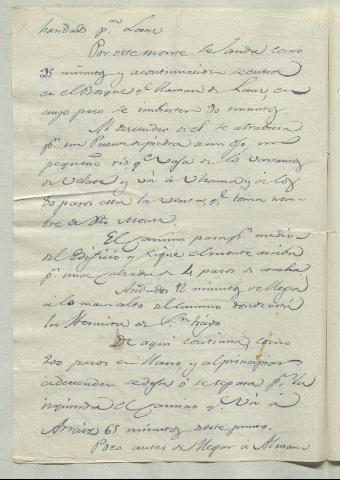 handado p.r Lanz
Por este monte se anda como
35 minutos y acontinuacion se entra
en el Bosque q.e llaman de Lanz, en
cuyo paso se imbierten 30 minutos.
Al descender de el se atrabiesa
p.r un Puente de piedra de un ojo, un
pequeño rio q.e vaja de los barrancos
de Velate y va à Ulzama y à los
60 pasos esta la Venta q.e toma nom-
bre de dho Monte.
El Camino pasa p.r medio
del Edificio y sigue el monte arriba
p.r una Calzada de 4 pasos de ancha
Andados 12 minutos se llega
a lo mas alto del camino donde está
la Hermita de S.n tiago
De aqui continua como
200 pasos en llano, y al principiar
a descender se separa p.r la
izquierda el Camino q.e và à
Arraiz 65 minutos de este punto.
Poco antes de llegar à Alman